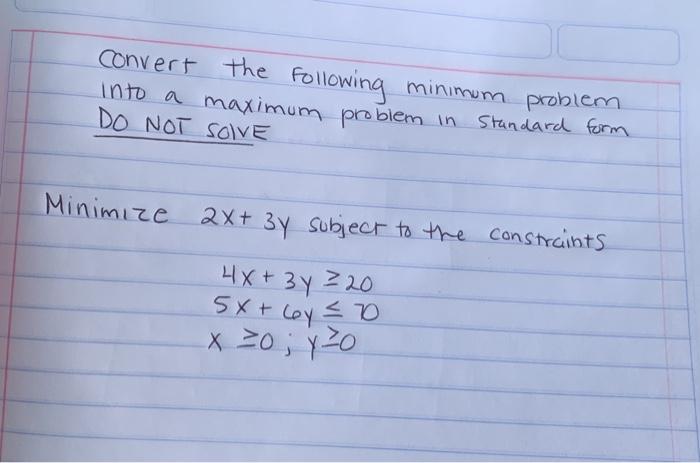 Convert the Following minimum problem
Into a maximum problem in Standard form
DO NOT SOLVE
Minimize 2x + 3y subject to the constraints
4x + 3y ≥ 20
5x + 6y ≤ 70
x ≥0 ; y≥0